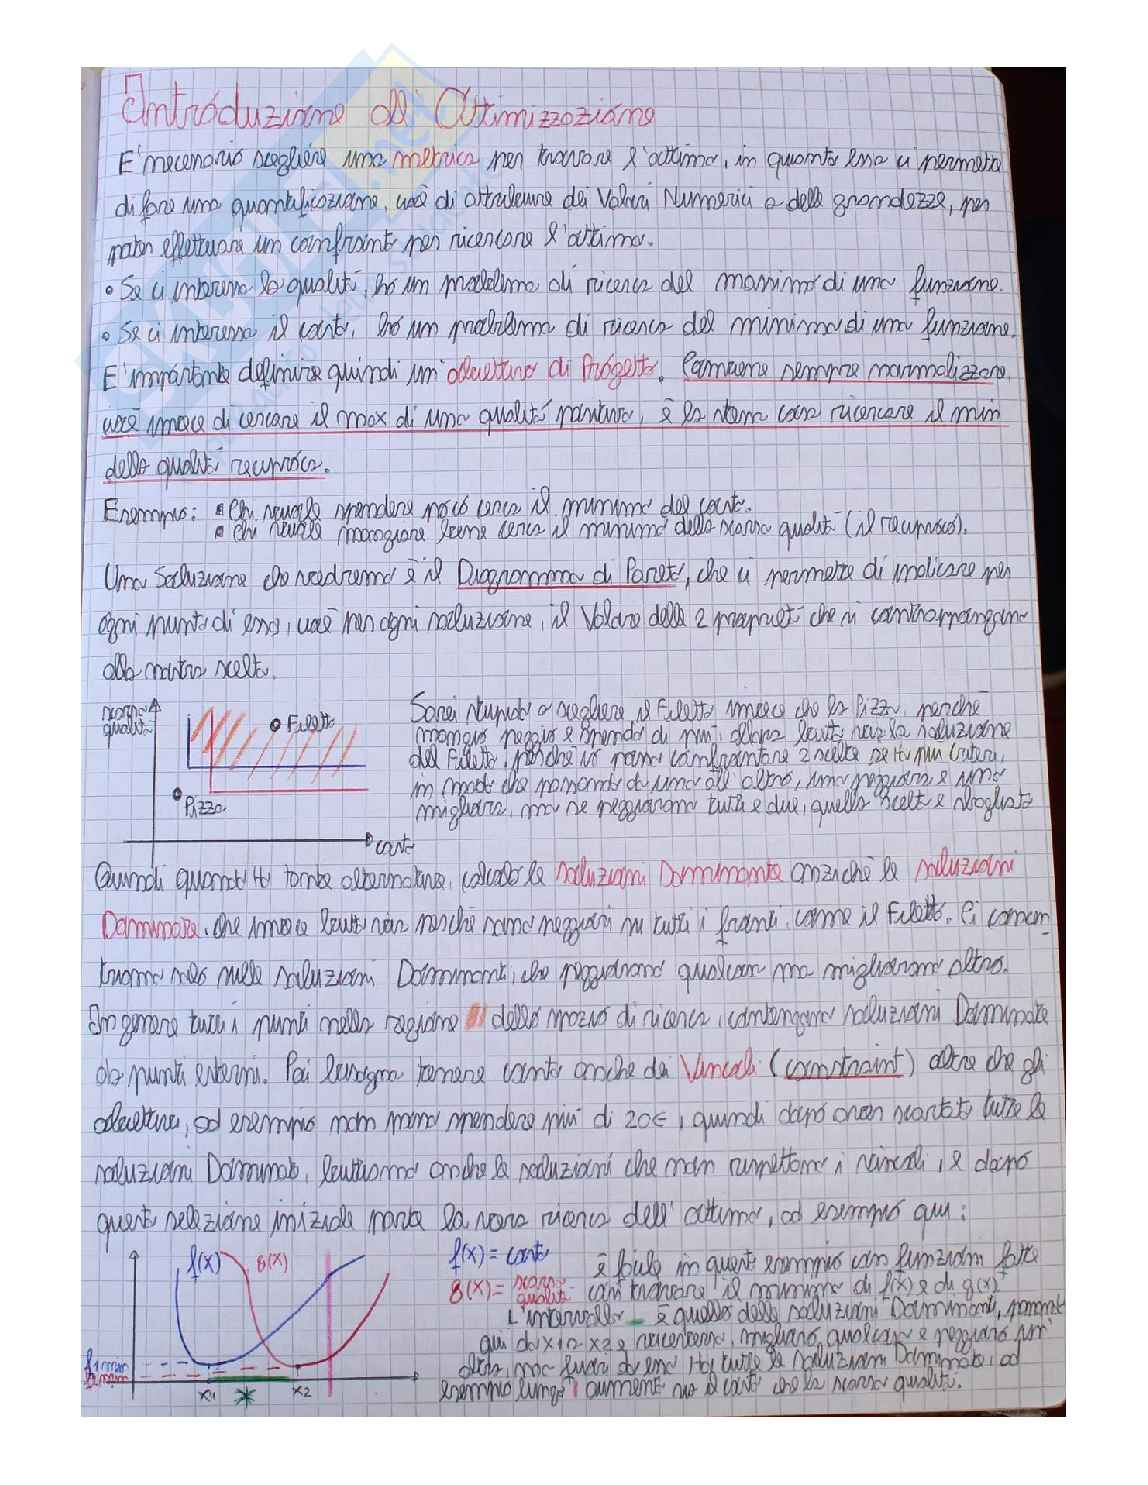 Introduzione all'Ottimizzazione
E' necessario scegliere una metrica per trovare l'ottimo, in quanto essa ci permette
di fare una quantificazione, cioè di attribuire dei Valori Numerici a delle grandezze, per
poter effettuare un confronto per ricercare l'ottimo.
• Se ci interessa la qualità, ho un problema di ricerca del massimo di una funzione.
• Se ci interessa il costo, ho un problema di ricerca del minimo di una funzione.
E' importante definire quindi un obiettivo di Progetto. Conviene sempre normalizzare,
cioè invece di cercare il max di una qualità positiva, è la stessa cosa ricercare il min
della qualità reciproca.
Esempio: • Chi vuole spendere poco cerca il minimo del costo.
• Chi vuole mangiare bene cerca il minimo della scarsa qualità (il reciproco).
Una Soluzione che vedremo è il Diagramma di Pareto, che ci permette di indicare per
ogni punto di esso, cioè per ogni soluzione, il Valore delle 2 proprietà che si contrappongono
alla nostra scelta.
scarsa qualità
Filetto
Pizza
costo
Sarei stupido a scegliere il Filetto invece che la Pizza, perché
mangio peggio e spendo di più, allora butto via la soluzione
del Filetto, perché io posso confrontare 2 scelte se Ho più criteri,
in modo che passando da una all'altra, una peggiora e una
migliora, ma se peggiorano tutti e due, quella scelta è sbagliata
Quindi quando Ho tante alternative, calcolo le soluzioni Dominanti anziché le soluzioni
Dominate, che invece butto via perché sono peggiori su tutti i fronti, come il Filetto. Ci concen-
triamo solo sulle soluzioni Dominanti, che peggiorano qualcosa ma migliorano altro.
In genere tutti i punti nella regione dello spazio di ricerca, contengono soluzioni Dominate
da punti esterni. Poi bisogna tenere conto anche dei Vincoli (constraint) oltre che gli
obiettivi, ad esempio non posso spendere più di 20€, quindi dopo aver scartato tutte le
soluzioni Dominate, buttiamo anche le soluzioni che non rispettano i vincoli, e dopo
questa selezione iniziale parte la vera ricerca dell'ottimo, ad esempio qui:
f(x) g(x)
f1 min
f2 min
x1 x2
f(x) = costo
g(x) = scarsa qualità
è facile in questo esempio con funzioni fatte
così trovare il minimo di f(x) e di g(x)
L'intervallo è quello delle soluzioni Dominanti, perché
qui da x1 a x2 migliora qualcosa e peggiora
altro, ma fuori da esso Ho tutte le soluzioni Dominate, ad
esempio lungo | aumenta sia il costo che la scarsa qualità.